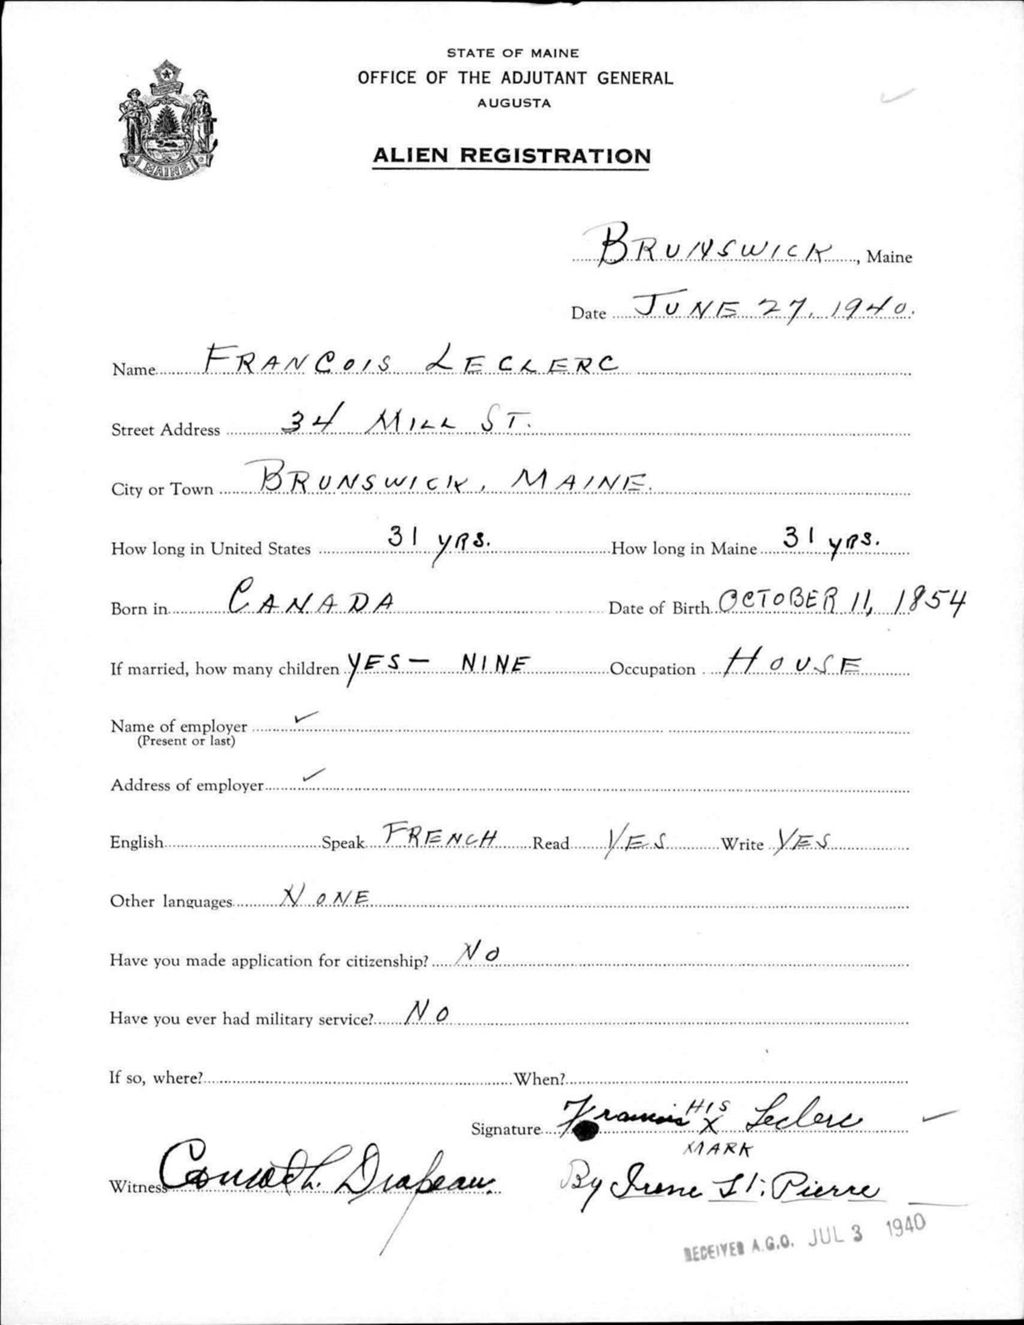 STATE OF MAINE
OFFICE OF THE ADJUTANT GENERAL
AUGUSTA
ALIEN REGISTRATION
MAINE
BRUNSWICK, Maine
Date JUNE 27, 1940.
Name FRANCOIS LECLERC
Street Address 34 MILL ST.
City or Town BRUNSWICK, MAINE.
How long in United States 31 yRS. How long in Maine 31 yRS.
Born in CANADA Date of Birth OCTOBER 11, 1854
If married, how many children YES — NINE Occupation HOUSE
Name of employer ✓
(Present or last)
Address of employer ✓
English Speak FRENCH Read YES Write YES
Other languages NONE
Have you made application for citizenship? NO
Have you ever had military service? NO
If so, where? When?
Signature Francois HIS X MARK Leclerc
Witness Conrad L. Drapeau. By Irene St. Pierre
RECEIVED A.G.O. JUL 3 1940